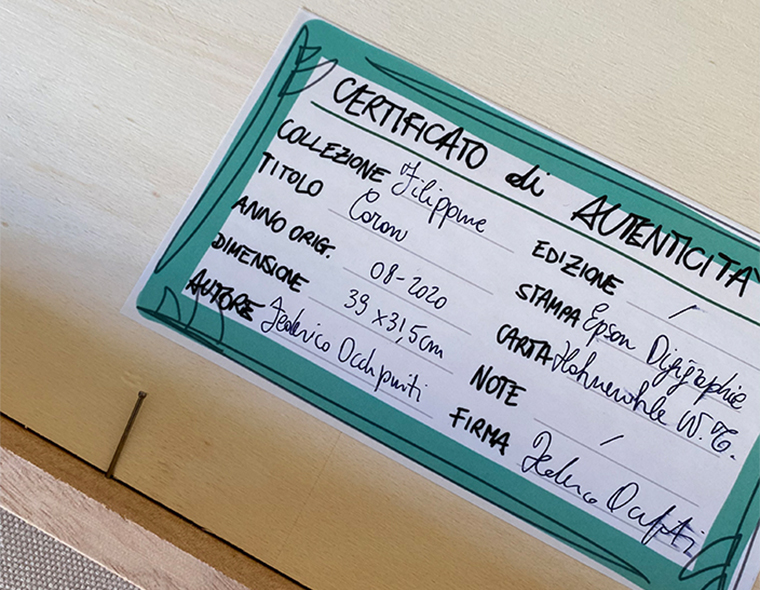 CERTIFICATO di AUTENTICITÀ
COLLEZIONE Filippine
TITOLO Coron
ANNO ORIG. 08-2020
DIMENSIONE 39 x 31,5 cm
AUTORE Federico Occhpinti
EDIZIONE /
STAMPA Epson Digigraphie
CARTA Hahnemühle W.T.
NOTE /
FIRMA Federico